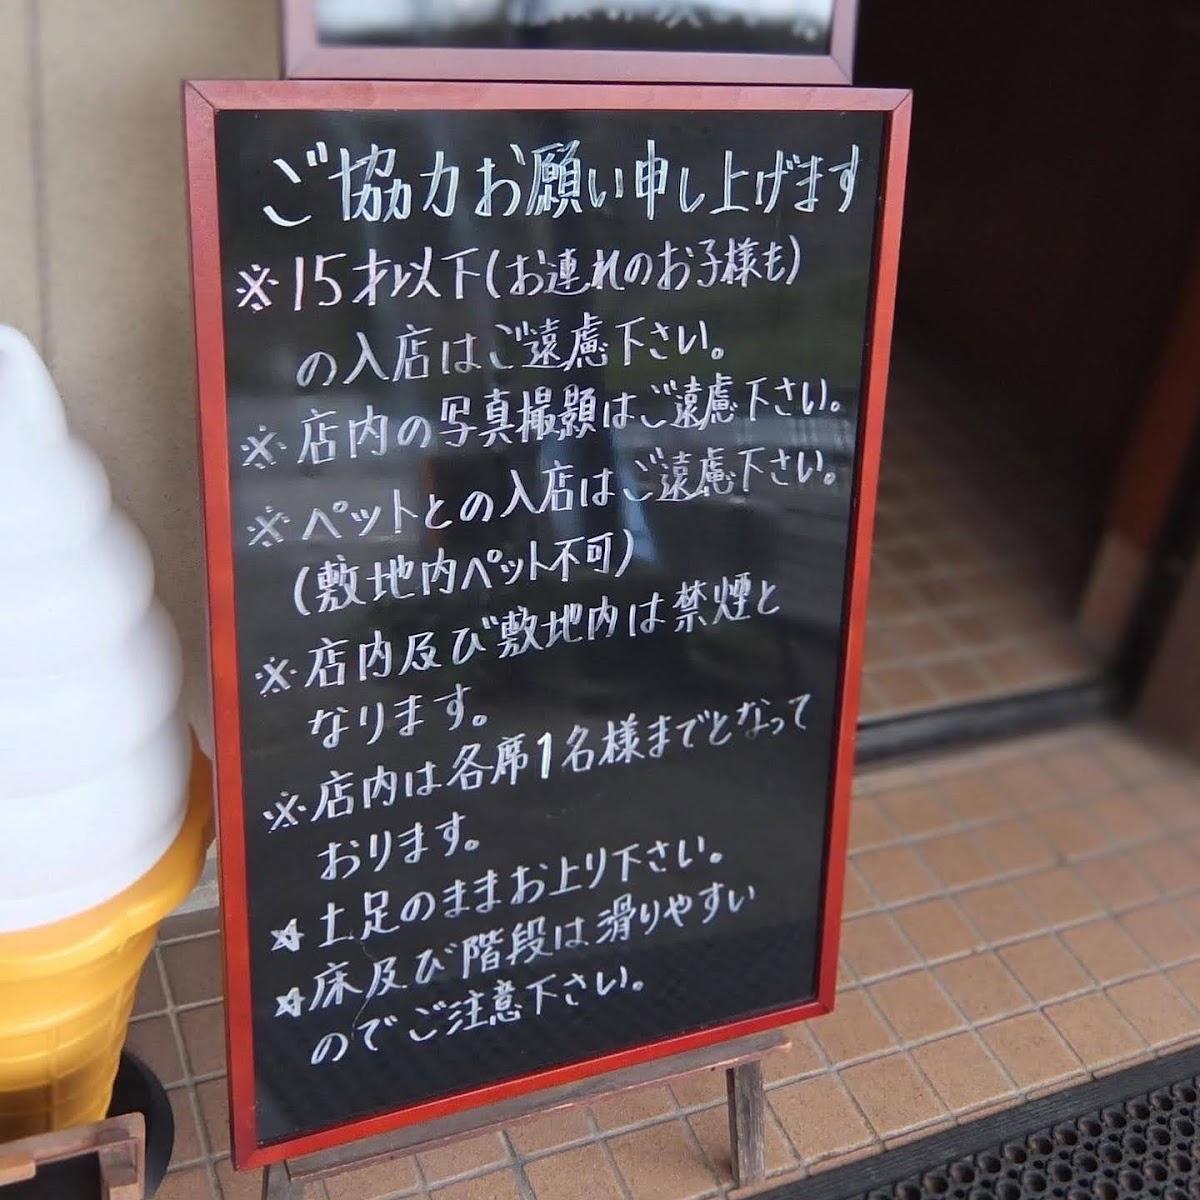 ご協力お願い申し上げます
※15才以下(お連れのお子様も)
の入店はご遠慮下さい。
※店内の写真撮影はご遠慮下さい。
※ペットとの入店はご遠慮下さい。
(敷地内ペット不可)
※店内及び敷地内は禁煙と
なります。
※店内は各席1名様までとなって
おります。
★土足のままお上り下さい。
★床及び階段は滑りやすい
のでご注意下さい。